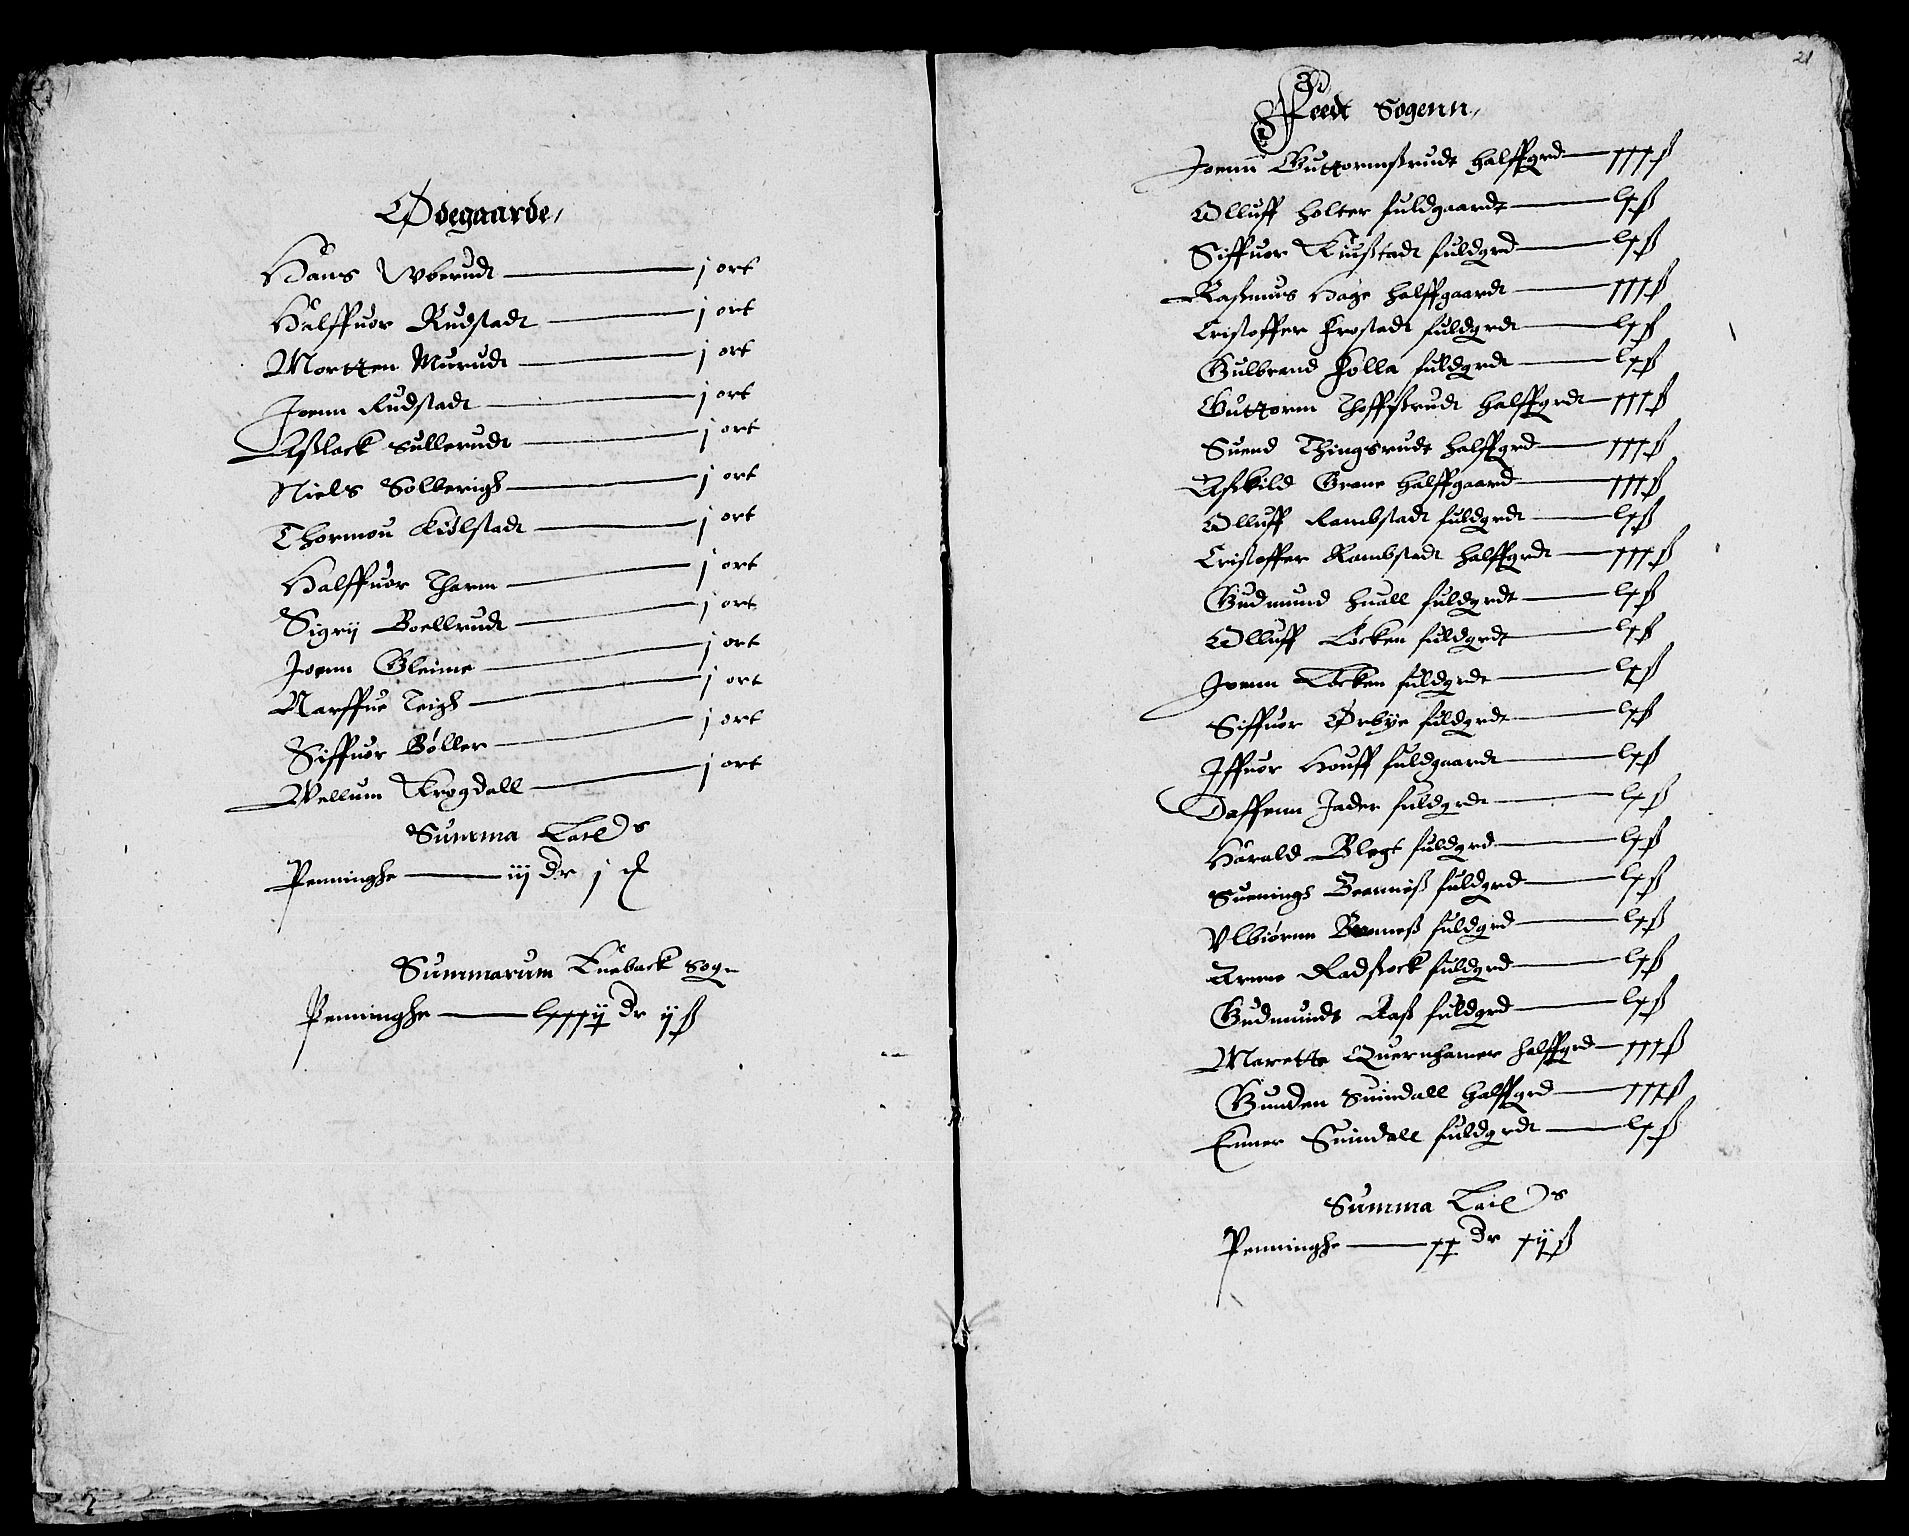 Ødegaarde,
Hans Vberudt — j ort
Halffuor Rudstadt — j ort
Mortten Murudt — j ort
Joenn Rudstadt — j ort
Aßlack Sullerudt — j ort
Niels Solberigh — j ort
Thormou Kiølstadt — j ort
Halffuor Tharm — j ort
Sigrij Boellrudt — j ort
Joenn Gleime — j ort
Narffue Teigh — j ort
Siffuor Bøller — j ort
Wellum Krogdall — j ort
Summa
Penninghe — iij dr j
Summarum Sog
Penninghe — lxxxij dr ij ß
21
Feedt Sogenn,
Joenn Guttormßrudt halffgrd — xxx ß
Olluff Holter fuldgaardt — lx ß
Siffuor Kiußtadt fuldgrd — lx ß
Raßmus Hage halffgaardt — xxx ß
Cristoffer Frostadt fuldgrdt — lx ß
Gulbrand Folla fuldgrdt — lx ß
Guttorm Thoffßrudt halffgrdt — xxx ß
Suend Thingsrudt halffgrd — xxx ß
Aßkild Grane halffgaard — xxx ß
Olluff Rambstadt fuldgrdt — lx ß
Cristoffer Rambstadt halffgrdt — xxx ß
Gudmund Huall fuldgrdt — lx ß
Olluff Locken fuldgrdt — lx ß
Joenn Locken fuldgrdt — lx ß
Siffuor Ørbye fuldgrdt — lx ß
Iffuor Houff fuldgaardt — lx ß
Daffenn Jader fuldgrdt — lx ß
Harald Blegt fuldgrd — lx ß
Suenningh fuldgrd — lx ß
Vlbiørnn fuldgrd — lx ß
Arnne Radßtock fuldgrd — lx ß
Gudmundt Raß fuldgrd — lx ß
Marette Quernhamer halffgrd — xxx ß
Gunden Suindall halffgrd — xxx ß
Enner Suindall fuldgrdt — lx ß
Summa
Penninghe — xx dr xij ß